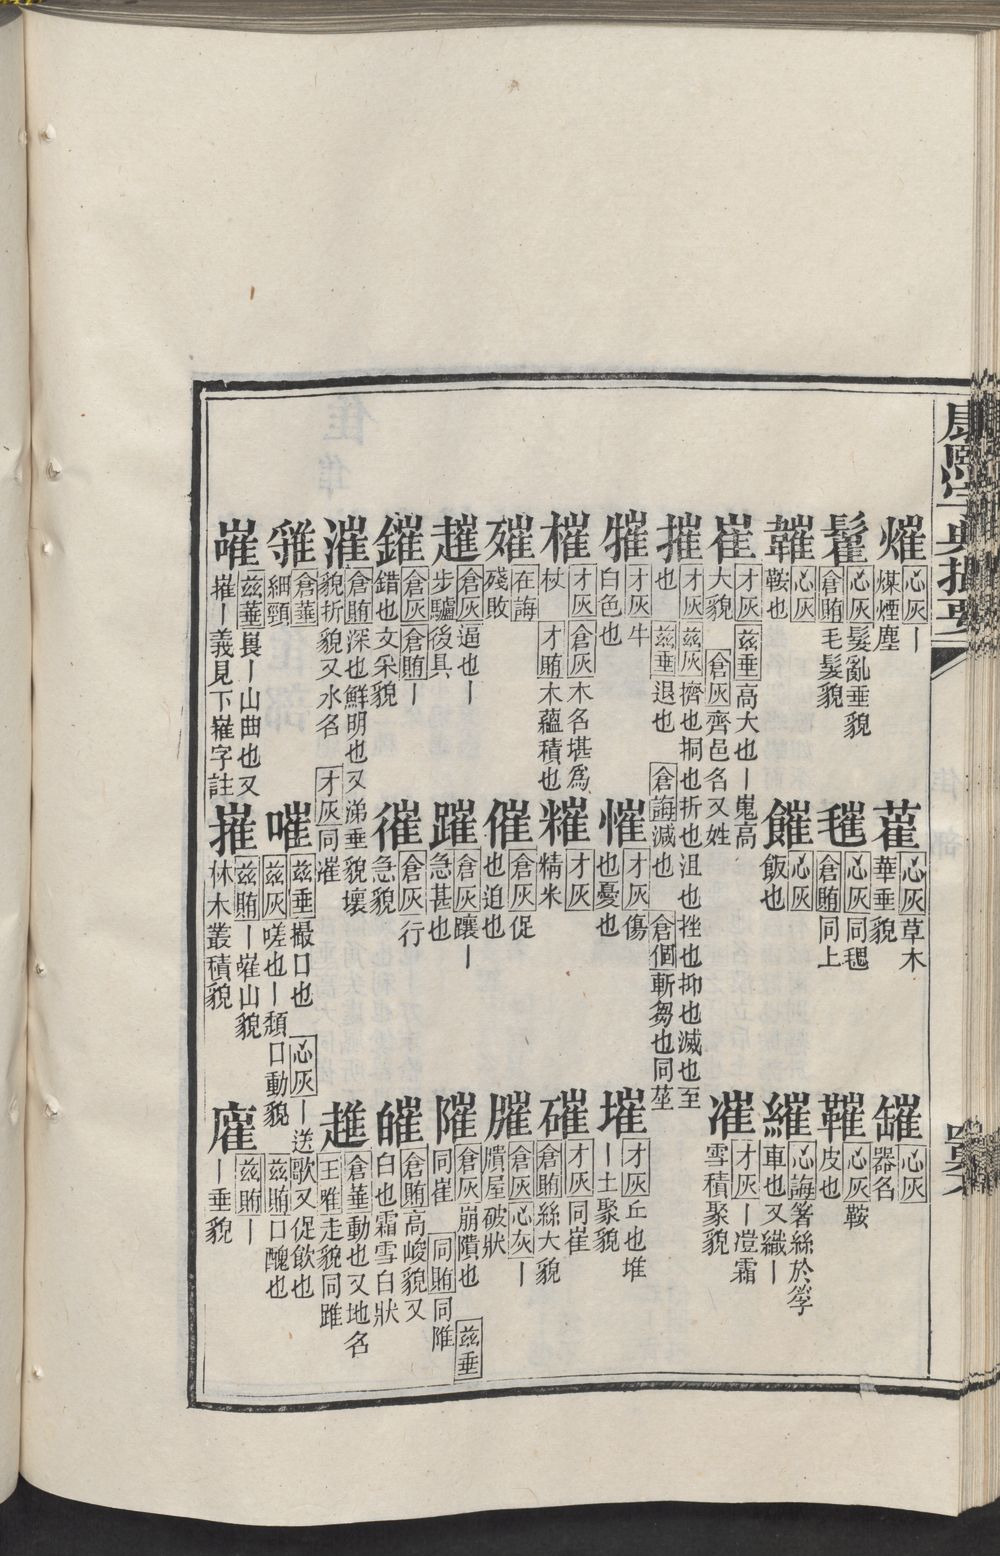 康熙字典撮要
熣 心灰 ｜煤煙塵
蓷 心灰 草木華垂貌
䍴 心灰 器名
鬗 心灰 髮亂垂貌 倉賄 毛髮貌
毸 心灰 同毸 倉賄 同上
鞖 心灰 鞍皮也
韉 心灰 鞍也
饀 心灰 飯也
繀 心誨 著絲於筟車也又織｜
崔 才灰 茲垂 高大也｜嵬高大貌 倉灰 齊邑名又姓
凗 才灰 ｜凒霜雪積聚貌
摧 才灰 茲灰 擠也挏也折也沮也挫也抑也滅也至也 茲垂 退也 倉誨 滅也 倉個 斬芻也同莝
㹐 才灰 牛白色也
慛 才灰 傷也憂也
墔 才灰 丘也堆｜土聚貌
槯 才灰 倉灰 木名堪為杖 才賄 木蘊積也
䊫 才灰 精米
磪 才灰 同崔 倉賄 絲大貌
㱖 在誨 殘敗
催 倉灰 促也迫也
臎 倉灰 心灰 ｜膭屋破狀
趡 倉灰 逼也｜步驢後具
躦 倉灰 躟｜急甚也
隦 倉灰 崩隤也 茲垂 同崔 同賄 同陮
鏙 倉灰 倉賄 ｜錯也文采貌
㜠 倉灰 行急貌
皠 倉賄 高峻貌又白也霜雪白狀
漼 倉賄 深也鮮明也又涕垂貌壞貌折貌又水名 才灰 同凗
趡 倉華 動也又地名 王唯 走貌同踓
㿷 倉華 細頸
嗺 茲垂 撮口也 心灰 ｜送歌又促飲也 茲灰 嗟也｜頹口動貌 茲賄 口醜也
嶉 茲華 㠢｜山曲也又嶊｜義見下嶊字註
嶊 茲賄 ｜嶉山貌林木叢積貌
㢈 茲賄 ｜｜垂貌
四百六